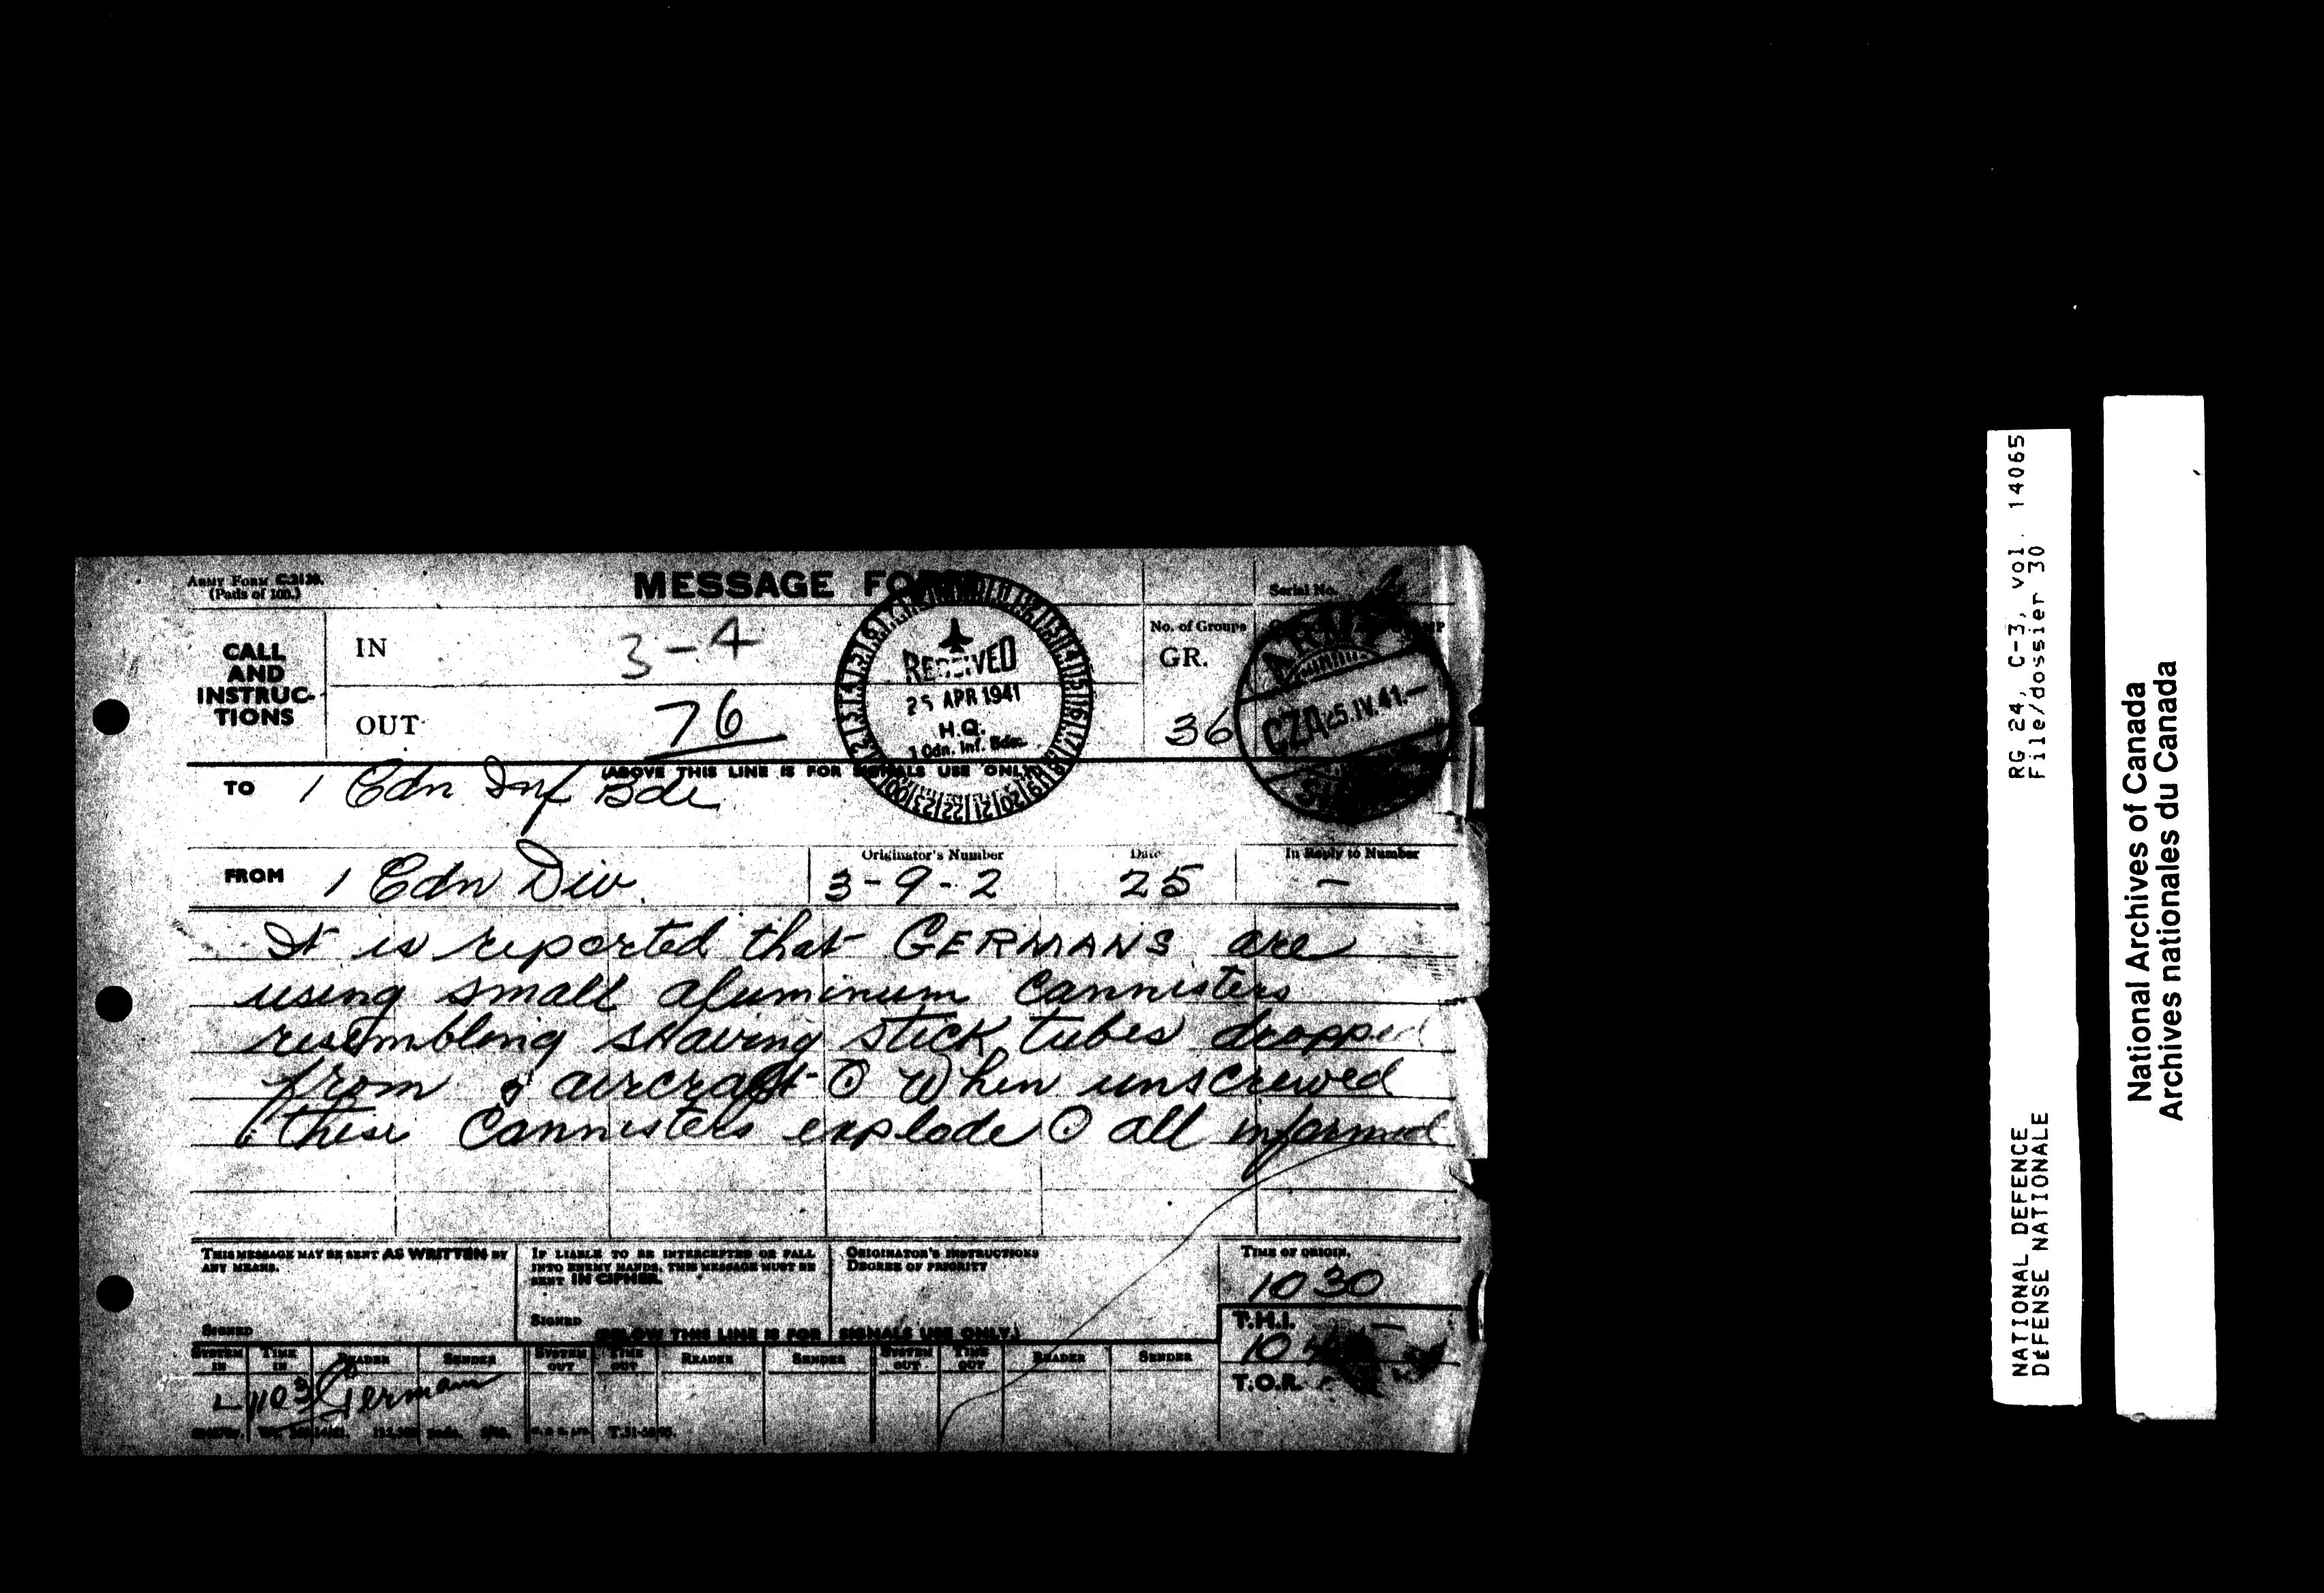 ARMY FORM C.2128.
(Pads of 100.)
MESSAGE FORM
Serial No.
CALL
AND
INSTRUC-
TIONS
IN
3-4
No. of Groups
GR.
36
OUT
76
RECEIVED
25 APR 1941
H.Q.
1 Cdn. Inf. Bde.
ARMY
CZA 25.IV.41.-
SIGNALS
(ABOVE THIS LINE IS FOR SIGNALS USE ONLY)
TO 1 Cdn Inf Bde
FROM 1 Cdn Div.
Originator's Number
3-9-2
Date
25
In Reply to Number
-
It is reported that GERMANS are
using small aluminum cannisters
resembling shaving stick tubes dropped
from aircraft O When unscrewed
these cannisters explode O all informed
THIS MESSAGE MAY BE SENT AS WRITTEN BY
ANY MEANS.
SIGNED
IF LIABLE TO BE INTERCEPTED OR FALL
INTO ENEMY HANDS, THIS MESSAGE MUST BE
SENT IN CIPHER.
SIGNED
ORIGINATOR'S INSTRUCTIONS
DEGREE OF PRIORITY
TIME OF ORIGIN.
1030
T.H.I.
T.O.R.
(BELOW THIS LINE IS FOR SIGNALS USE ONLY.)
SYSTEM IN TIME IN READER SENDER SYSTEM OUT TIME OUT READER SENDER SYSTEM OUT TIME OUT READER SENDER
L 1103 German
NATIONAL DEFENCE RG 24, C-3, vol. 14065
DÉFENSE NATIONALE File/dossier 30
National Archives of Canada
Archives nationales du Canada